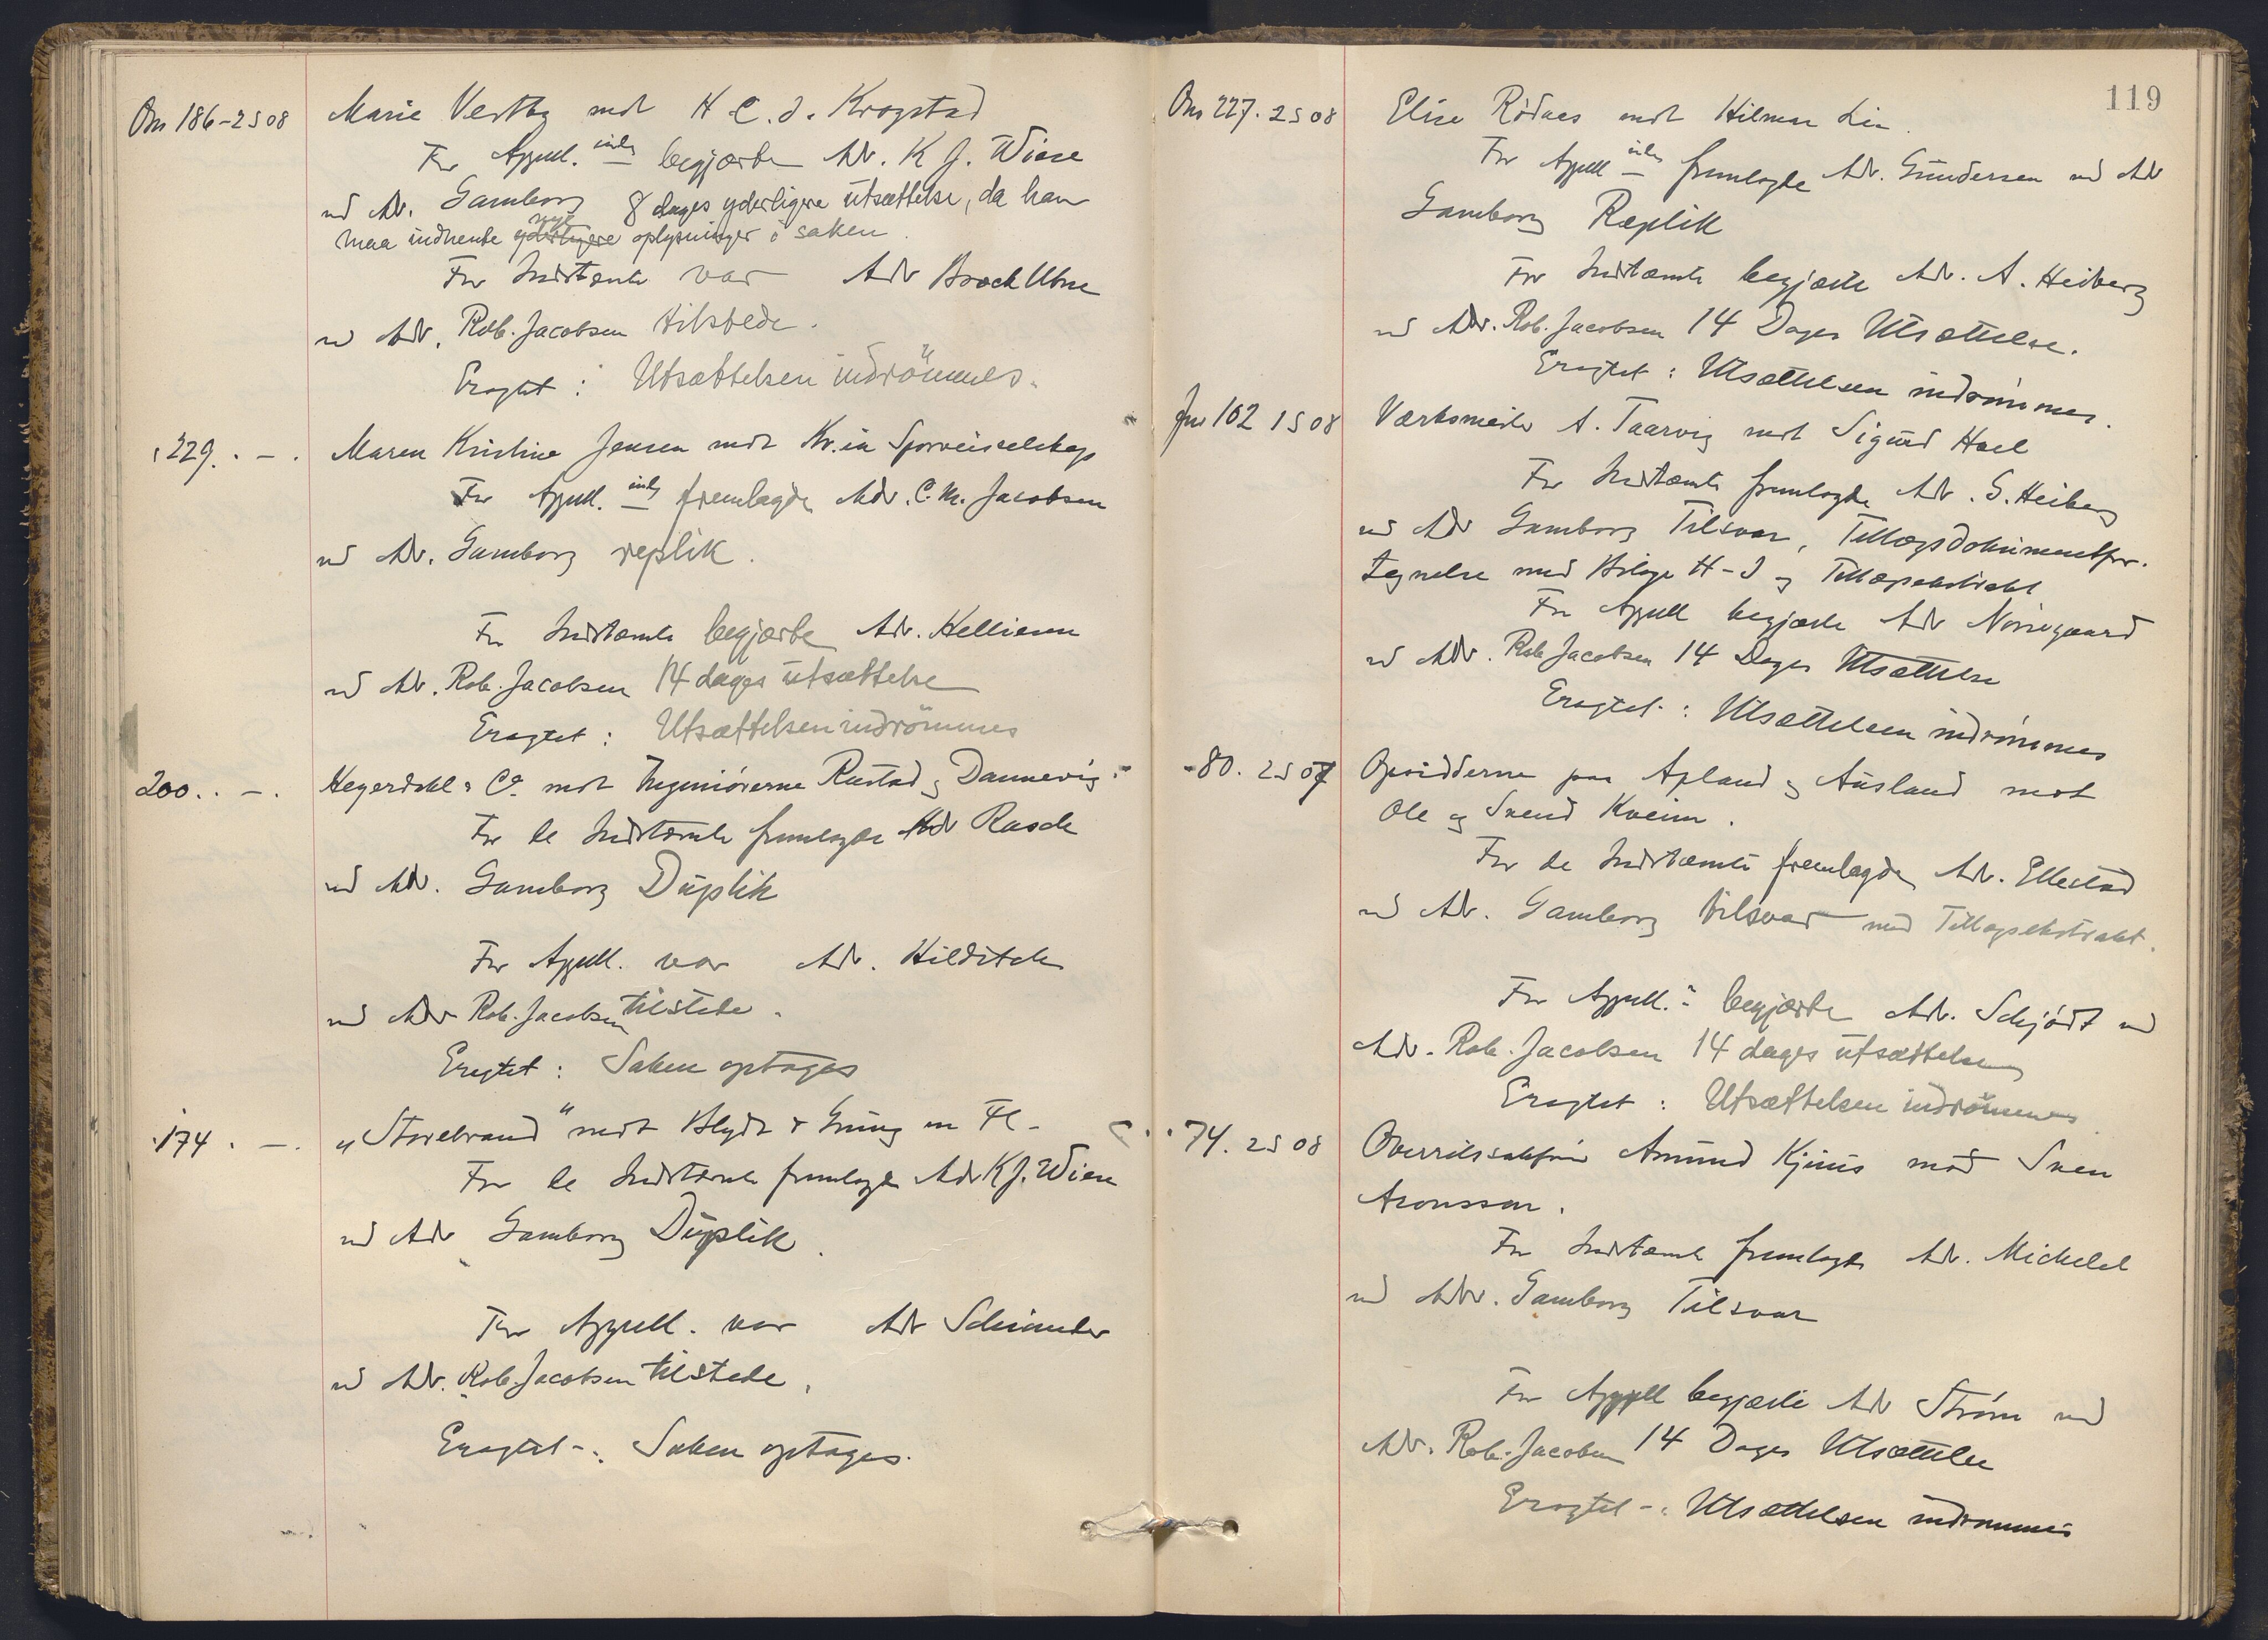 Ons 186-2S08 Marie Vestby mot H. C. J. Krogstad
For Appell.inden begjærte Adv. K J. Wiese
ved Adv. Gamborg 8 dages yderligere utsættelse, da han
maa indhente yderligere nye oplysninger i saken.
For Indstævnte var Adv Broch Utne
ved Adv. Rob. Jacobsen tilstede.
Eragtet: Utsættelsen indrömmes.
229. - . Maren Kristine Jensen mot Kr.ia Sporveisselskap
For Appell.inden fremlagde Adv. C. M. Jacobsen
ved Adv. Gamborg replik.
For Indstævnte begjærte Adv. Helliesen
ved Adv. Rob. Jacobsen 14 dages utsættelse
Eragtet: Utsættelsen indrömmes
200. . - . Heyerdahl & Co. mot Ingeniørerne Rustad og Dannevig.
For de Indstævnte fremlagde Adv Rasch
ved Adv. Gamborg Duplik
For Appell. var Adv. Hilditch
ved Adv Rob. Jacobsen tilstede.
Eragtet: Saken optages
174. - . „Storebrand" mot Blydt & Grung m Fl.
For de Indstævnte fremlagde Adv K J. Wiese
ved Adv Gamborg Duplik.
For Appell. var Adv Schiander
ved Adv. Rob. Jacobsen tilstede.
Eragtet: Saken optages.
119
Ons 227. 2S08 Elise Rødnes mot Hilmar Lie.
For Appell.inden fremlagde Adv. Gundersen ved Adv
Gamborg Replik
For Indstævnte begjærte Adv. A. Heiberg
ved Adv. Rob. Jacobsen 14 Dages Utsættelse.
Eragtet: Utsættelsen indrømmes.
102 1S08 Værksmeister A. Taarvig mot Sigurd Hoel
For Indstævnte fremlagde Adv. G. Heiberg
ved Adv Gamborg Tilsvar, Tillægsdokumentfor-
tegnelse med Bilage H-J og Tillægsekstrakt
For Appell begjærte Adv Nørregaard
ved Adv. Rob Jacobsen 14 Dages Utsættelse
Eragtet: Utsættelsen indrømmes
-80. 2S07 Opsidderne paa Apland og Ausland mot
Ole og Svend Kveim.
For de Indstævnte fremlagde Adv. Ellestad
ved Adv. Gamborg tilsvar med Tillægsekstrakt.
For Appell. begjærte Adv. Schjödt ved
Adv. Rob. Jacobsen 14 dages utsættelse
Eragtet: Utsættelsen indrömmes
74. 2S08 Overretssakfører Amund Kjuus mod Sven
Aronsson.
For Indstævnte fremlagde Adv. Michelet
ved Adv. Gamborg Tilsvar
For Appell begjærte Adv Strøm ved
Adv. Rob. Jacobsen 14 Dages Utsættelse
Eragtet: Utsættelsen indrømmes